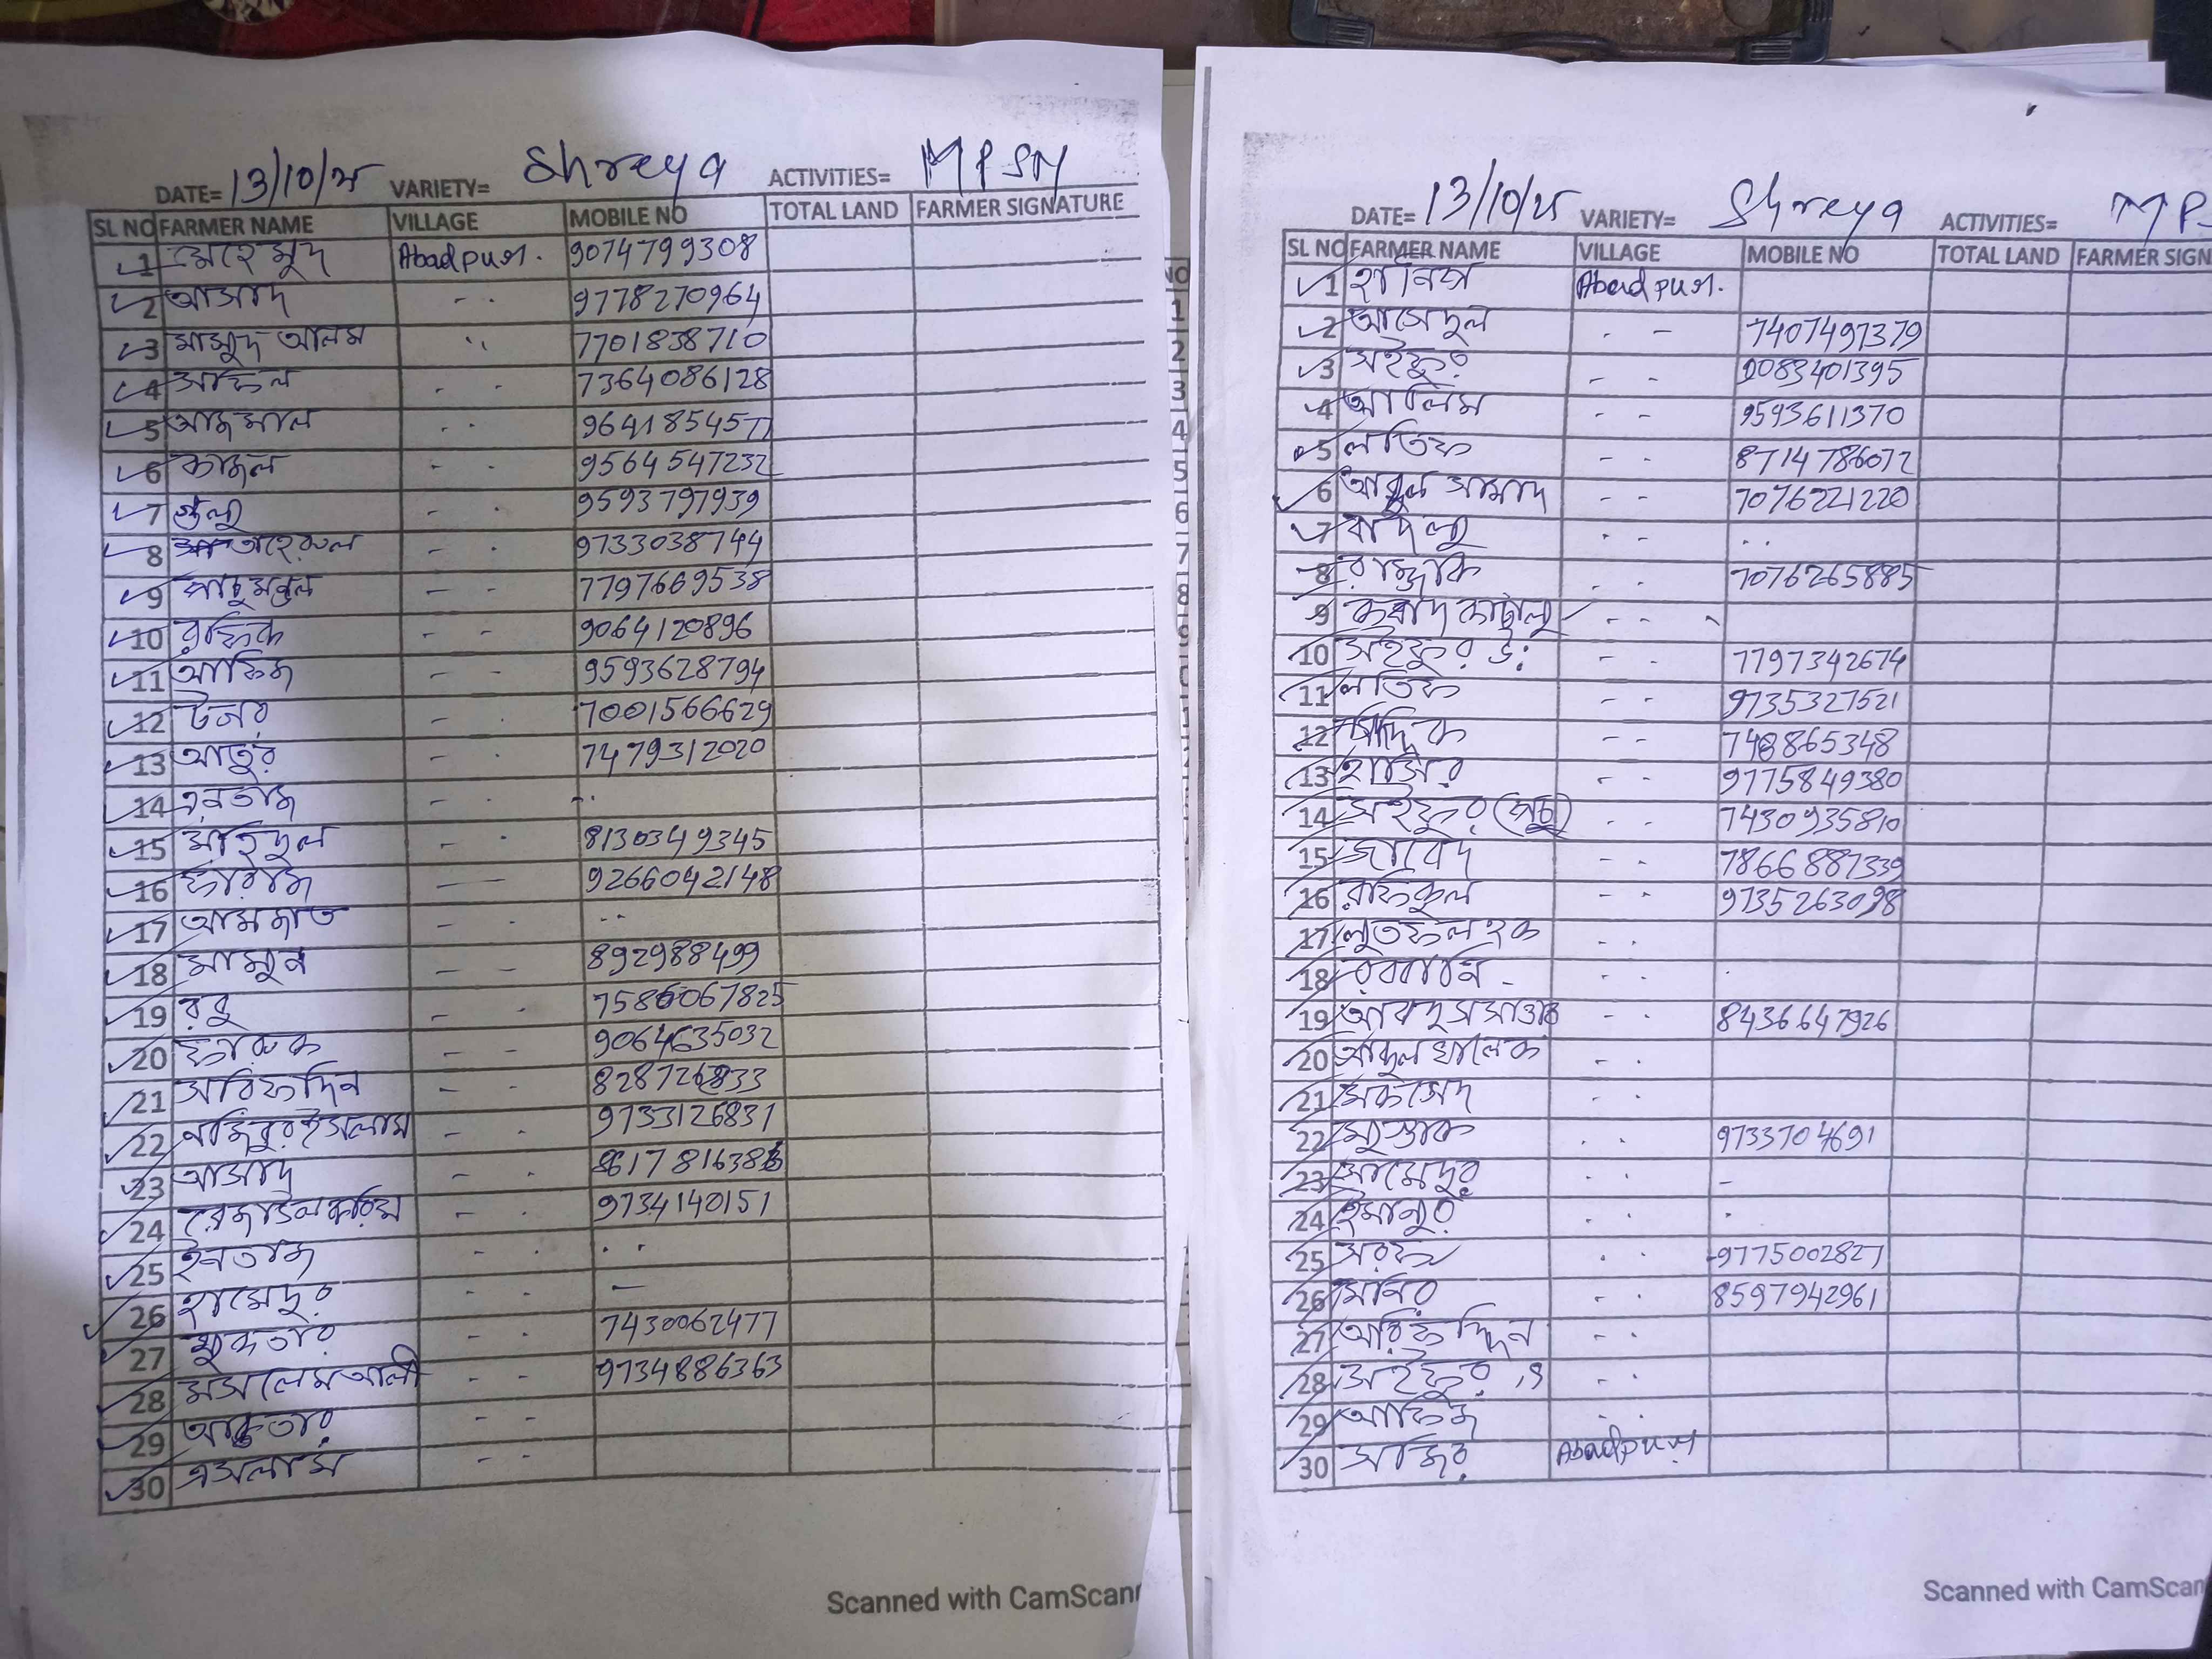 DATE= 13/10/25 VARIETY= Shreya ACTIVITIES= MPSM
SL NO FARMER NAME VILLAGE MOBILE NO TOTAL LAND FARMER SIGNATURE
1 মেহেমুদ Abadpur. 9074799308
2 আসাদ - . 9778270964
3 মাসুদ আলম " 7701838710
4 সফিল - - 7364086128
5 আজমাল - - 9641854577
6 কাজল - - 9564547232
7 গুলু - - 9593797939
8 আতাহেরুল - - 9733038744
9 পাচু মন্ডল - - 7797669538
10 রফিক - - 9064120896
11 আফিজ - - 9593628794
12 টজর - . 7001566629
13 আতুর - . 7479312020
14 এনতাজ - . - .
15 মহিদুল - . 8130349345
16 ফারাজ - - 9266042148
17 আমজাত - . - -
18 মামুন - - 892988499
19 রবু - - 7586067825
20 ফারুক - - 9064635032
21 সরিফদ্দিন - - 828726833
22 নজিবুর ইসলাম - . 9733126831
23 আসাদ - . 8617816383
24 রেজাউল করিম - . 9734140151
25 ইনতাজ - . . .
26 হামেদুর - . -
27 মুকতার - . 7430062477
28 মসলেম আলী - - 9734886363
29 আকতার - -
30 এসলাম - -
Scanned with CamScan
DATE= 13/10/25 VARIETY= Shreya ACTIVITIES= MP
SL NO FARMER NAME VILLAGE MOBILE NO TOTAL LAND FARMER SIGN
1 হানিফ Abadpur.
2 আসেদুল - - 7407497379
3 সইফুর - - 9083401395
4 আলিম - - 9593611370
5 লতিফ - - 8714786072
6 আব্দুল সামাদ - - 7076221220
7 বাদলু - - . .
8 রাজ্জাক . - 7076265885
9 কাটালু - -
10 সইফুর ড: - - 7797342674
11 লতিফ - - 9735327521
12 সিদ্দিক - - 748865348
13 হাসির - - 9775849380
14 সইফুর (পচু) - - 7430935810
15 জাবেদ - - 7866887339
16 রফিকুল - - 9735263098
17 লুতফল হক - .
18 রব্বানি - . .
19 - . 8436647926
20 আব্দুল খালেক - .
21 মকসেদ - .
22 মুস্তাক . . 9733704691
23 সামেদুর - . -
24 ইমানুর . . .
25 সরফ . . 9775002827
26 মনির - . 8597942961
27 আরিফদ্দিন - .
28 সইফুর - .
29 আফিজ - .
30 সাজির Abadpur
Scanned with CamScan